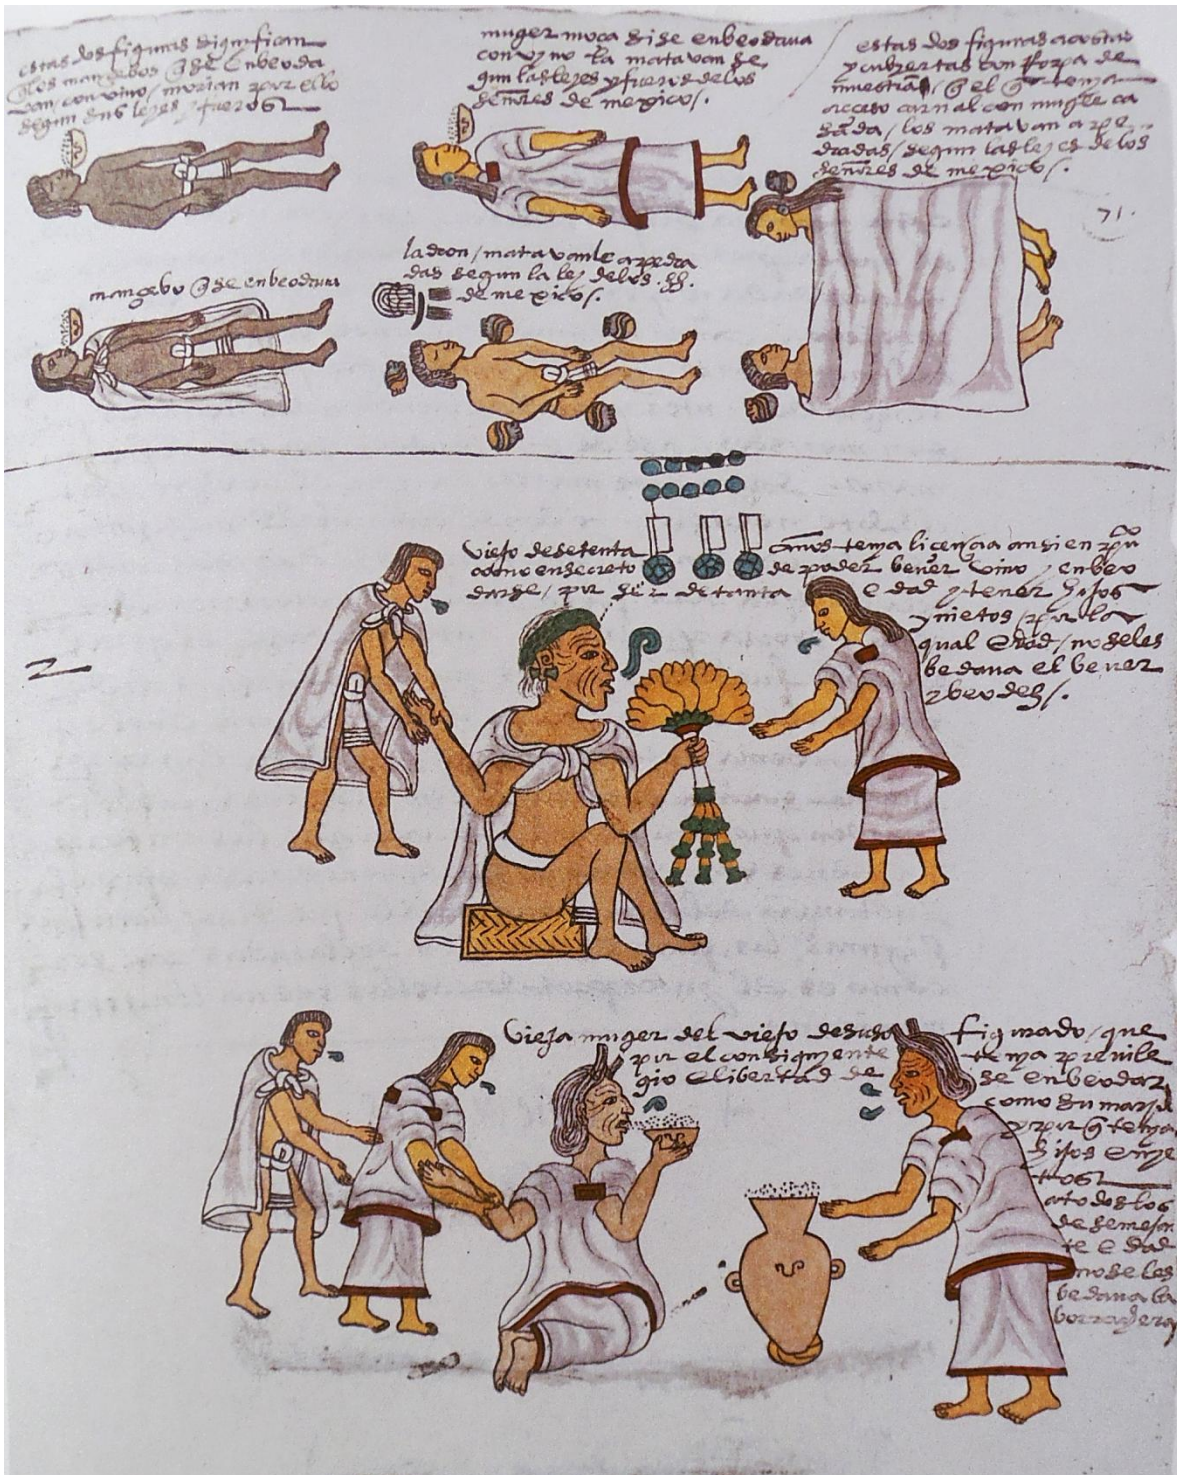 estas dos figuras significan
q los mançebos q se enbeoda
van / con vino / morian por ello
segun sus leyes y fueros
muger moça si se enbeodava
con vino la matavan se
gun las leyes y fueros de los
señores de mexico /.
estas dos figuras acostad
y cubiertas con Ropa de
muestran / q el q tenya
acceso carnal con muger ca
sada / los matavan a pe
dradas / segun las leyes de los
señores de mexico /.
71.
mançebo q se enbeodava
ladron / matavanle a pedra
das segun la ley de los .SS.
de mexico /.
viejo de setenta años tenya licençia ansi en pu
como en secreto de poder bever vino y enbeo
darse / por ser de tanta edad y tener hijos
y nietos / por la
qual edad / no se les
bedava el bever
vieja muger del viejo de suso figurado / que
por el consiguiente tenya previle
gio e libertad de se enbeodar
como su marido
y por q tenya
hijos e nye
tos
a todos los
de semejan
te edad
no se les
bedava la
borrachera